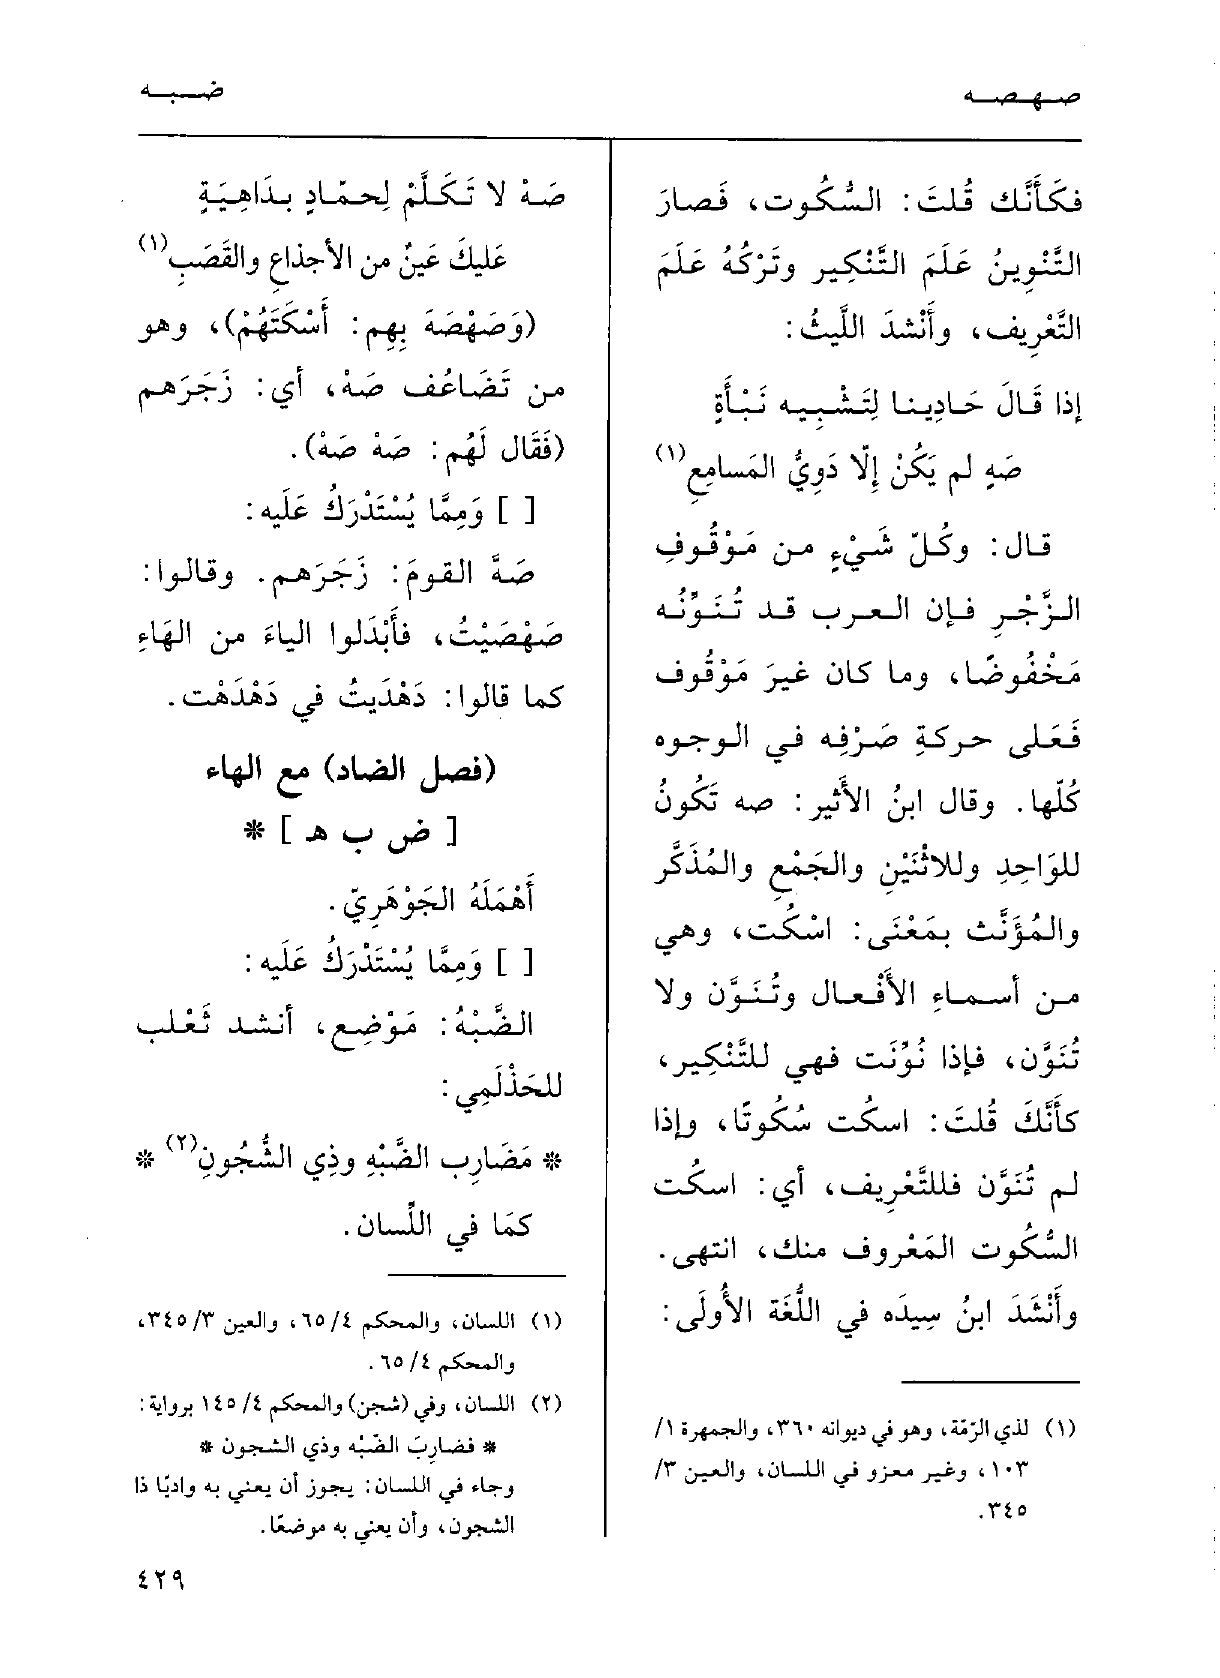 صهصه
ضبه
فكَأَنَّك قُلتَ: السُّكُوت، فَصارَ
التَّنْوِينُ عَلَمَ التَّنْكِير وتَرْكُهُ عَلَمَ
التَّعْرِيف، وأَنْشدَ اللَّيثُ:
إذا قَالَ حَادِينا لِتَشْبِيه نَبْأَةٍ
صَهٍ لم يَكُنْ إِلّا دَوِيُّ المَسامِعِ(١)
قال: وكُلّ شَيْءٍ من مَوْقُوفِ
الزَّجْرِ فإن العرب قد تُنَوِّنُه
مَخْفُوضًا، وما كان غيرَ مَوْقُوف
فَعَلى حركةِ صَرْفِه في الوجوه
كُلّها. وقال ابنُ الأَثير: صه تكُونُ
للوَاحِدِ وللاثْنَيْنِ والجَمْعِ والمُذَكَّر
والمُؤَنَّث بمَعْنَى: اسْكُت، وهي
من أسماءِ الأَفْعال وتُنَوَّن ولا
تُنَوَّن، فإذا نُوِّنَت فهي للتَّنْكِير،
كأَنَّكَ قُلتَ: اسكُت سُكُوتًا، وإذا
لم تُنَوَّن فللتَّعْرِيف، أي: اسكُت
السُّكُوت المَعْروف منك، انتهى.
وأَنْشَدَ ابنُ سِيدَه في اللُّغَة الأُولَى:
(١) لذي الرّمّة، وهو في ديوانه ٣٦٠، والجمهرة ١/
١٠٣، وغير معزو في اللسان، والعين ٣/
٣٤٥.
صَهْ لا تَكَلَّمْ لِحمّادٍ بدَاهِيَةٍ
عَليكَ عَينٌ من الأَجذاعِ والقَصَبِ(١)
(وَصَهْصَهَ بِهِم: أَسْكَتَهُمْ)، وهو
من تَضَاعُف صَهْ، أي: زَجَرَهم
(فَقَال لَهُم: صَهْ صَهْ).
[ ] وَمِمَّا يُسْتَدْرَكُ عَلَيه:
صَهَّ القومَ: زَجَرَهم. وقالوا:
صَهْصَيْتُ، فأَبْدَلوا الياءَ من الهَاءِ
كما قالوا: دَهْدَيتُ في دَهْدَهْت.
(فصل الضاد) مع الهاء
[ ض ب هـ ] *
أَهْمَلَهُ الجَوْهَرِيّ.
[ ] وَمِمَّا يُسْتَدْرَكُ عَلَيه:
الضَّبْهُ: مَوْضِع، أنشد ثَعْلب
للحَذْلَمِي:
* مَضَارِب الضَّبْهِ وذِي الشُّجُونِ(٢) *
كمَا في اللِّسان.
(١) اللسان، والمحكم ٦٥/٤، والعين ٣٤٥/٣،
والمحكم ٦٥/٤.
(٢) اللسان، وفي (شجن) والمحكم ١٤٥/٤ برواية:
* فضاربَ الضَّبْه وذي الشجون *
وجاء في اللسان: يجوز أن يعني به واديًا ذا
الشجون، وأن يعني به موضعًا.
٤٢٩